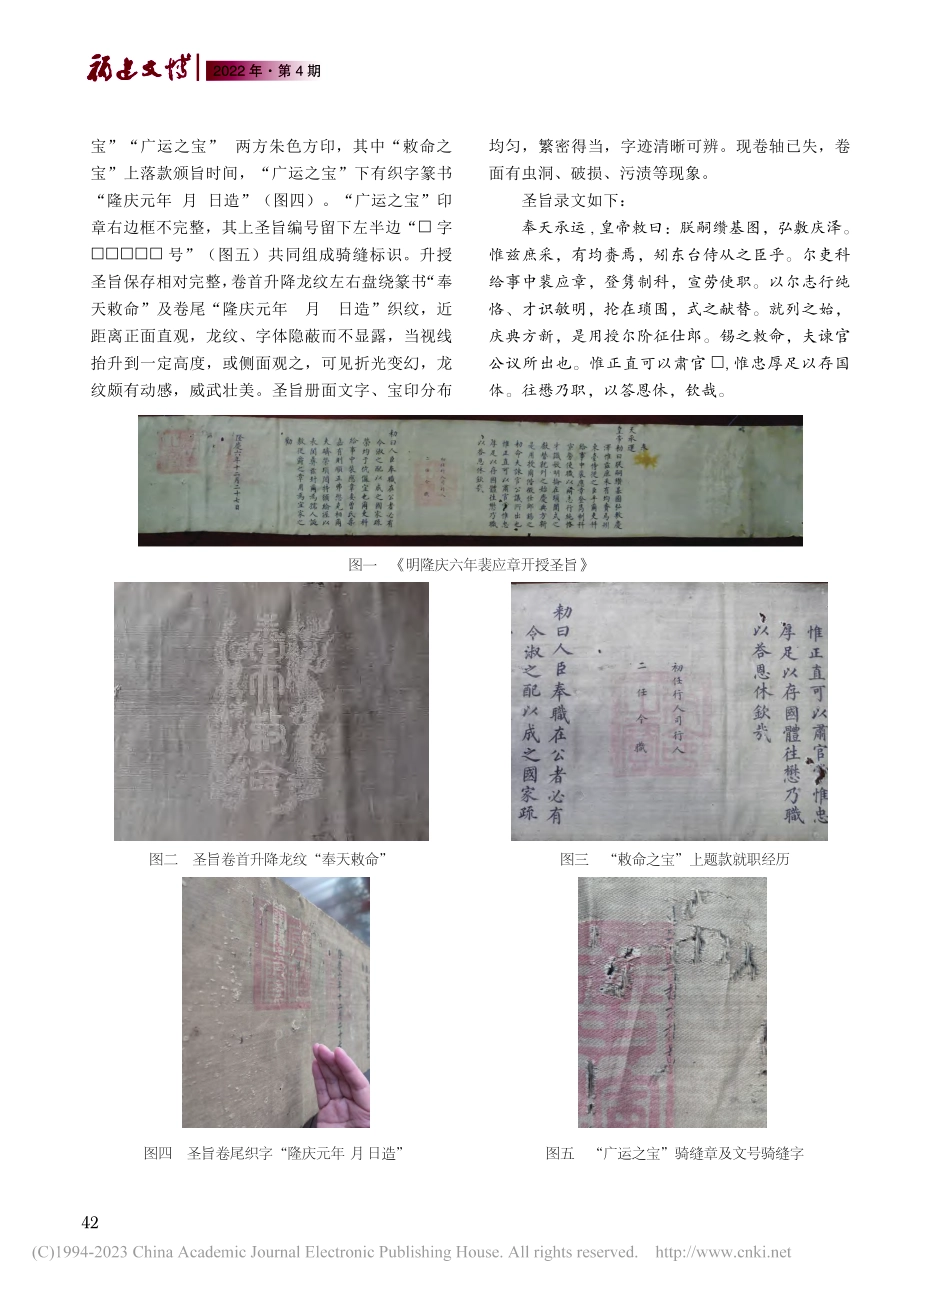 福建文博
2022 年·第 4 期
宝”“广运之宝” 两方朱色方印，其中“敕命之
宝”上落款颁旨时间，“广运之宝”下有织字篆书
“隆庆元年 月 日造”（图四）。“广运之宝”印
章右边框不完整，其上圣旨编号留下左半边“□ 字
□□□□□ 号”（图五）共同组成骑缝标识。升授
圣旨保存相对完整，卷首升降龙纹左右盘绕篆书“奉
天敕命”及卷尾“隆庆元年 月 日造”织纹，近
距离正面直观，龙纹、字体隐蔽而不显露，当视线
抬升到一定高度，或侧面观之，可见折光变幻，龙
纹颇有动感，威武壮美。圣旨册面文字、宝印分布
均匀，繁密得当，字迹清晰可辨。现卷轴已失，卷
面有虫洞、破损、污渍等现象。
圣旨录文如下：
奉天承运，皇帝敕曰：朕嗣缵基图，弘敷庆泽。
惟兹庶采，有均赉焉，矧东台侍从之臣乎。尔吏科
给事中裴应章，登隽制科，宣劳使职。以尔志行纯
恪、才识敏明，抡在琐围，式之献替。就列之始，
庆典方新，是用授尔阶征仕郎。锡之敕命，夫谏官
公议所出也。惟正直可以肃官 □，惟忠厚足以存国
体。往懋乃职，以答恩休，钦哉。
图一 《明隆庆六年裴应章开授圣旨》
惟正直可以肅官 惟忠
厚足以存國體往懋乃職
以答恩休欽哉
初任行人司行人
二任今職
勑曰人臣奉職在公者必有
令淑之配以成之國家疏
图二 圣旨卷首升降龙纹“奉天敕命”
图三 “敕命之宝”上题款就职经历
图四 圣旨卷尾织字“隆庆元年 月 日造”
图五 “广运之宝”骑缝章及文号骑缝字
42
(C)1994-2023 China Academic Journal Electronic Publishing House. All rights reserved. http://www.cnki.net